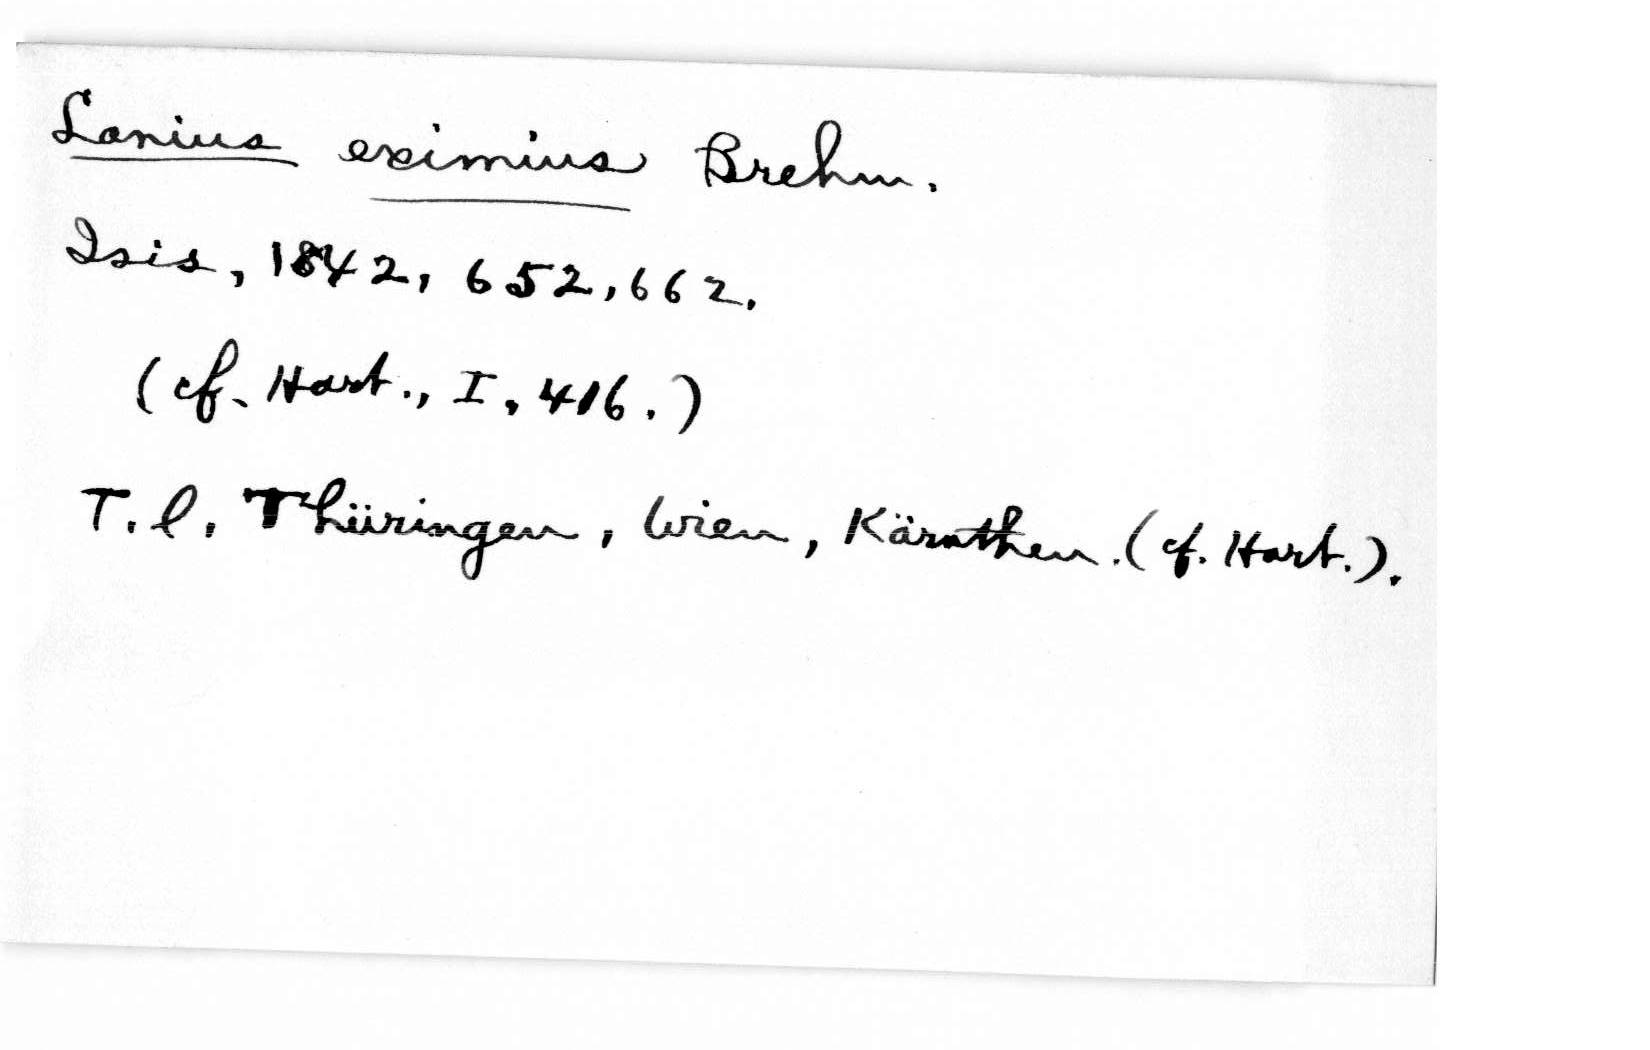 Lanius eximius Brehm.
Isis, 1842, 652, 662.
(cf. Hart., I, 416.)
T. l. Thüringen, Wien, Kärnthen. (cf. Hart.).